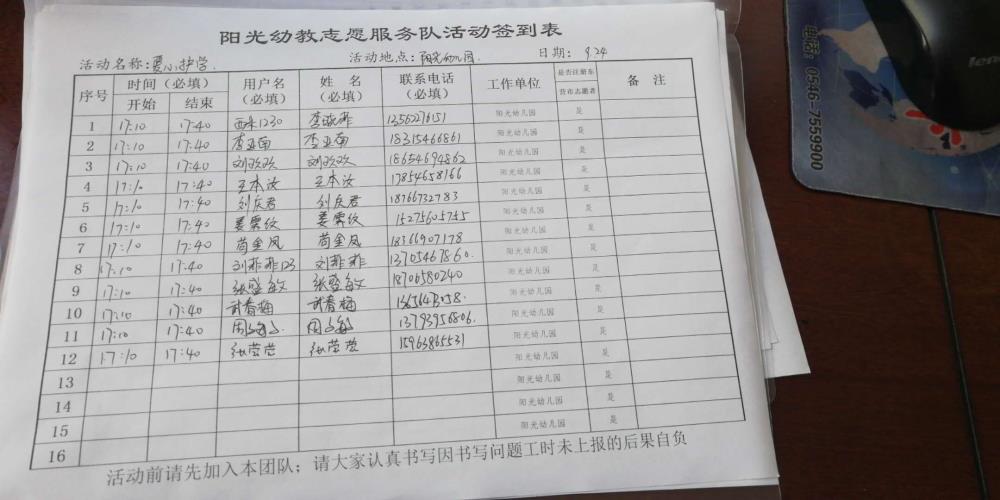 阳光幼教志愿服务队活动签到表
活动名称: 护学 活动地点: 阳光幼儿园 日期: 9.24
序号 时间（必填） 用户名（必填） 姓名（必填） 联系电话（必填） 工作单位 是否注册东营市志愿者 备注
开始 结束
1 17:10 17:40 1230 13562276151 阳光幼儿园 是
2 17:10 17:40 李亚南 李亚南 18315466861 阳光幼儿园 是
3 17:10 17:40 刘欢欢 刘欢欢 18654694862 阳光幼儿园 是
4 17:10 17:40 王本汝 王本汝 17854658166 阳光幼儿园 是
5 17:10 17:40 刘庆君 刘庆君 18766732783 阳光幼儿园 是
6 17:10 17:40 姜雲纹 姜雲纹 15275605745 阳光幼儿园 是
7 17:10 17:40 苟金凤 苟金凤 18366907178 阳光幼儿园 是
8 17:10 17:40 刘菲菲123 刘菲菲 13705467860 阳光幼儿园 是
9 17:10 17:40 张盛敏 张盛敏 18706580240 阳光幼儿园 是
10 17:10 17:40 武春梅 武春梅 阳光幼儿园 是
11 17:10 17:40 13793956806 阳光幼儿园 是
12 17:10 17:40 张莹莹 张莹莹 15963865531 阳光幼儿园 是
13 阳光幼儿园 是
14 阳光幼儿园 是
15 阳光幼儿园 是
16
活动前请先加入本团队；请大家认真书写因书写问题工时未上报的后果自负
电话: 0546-7559900
lenovo